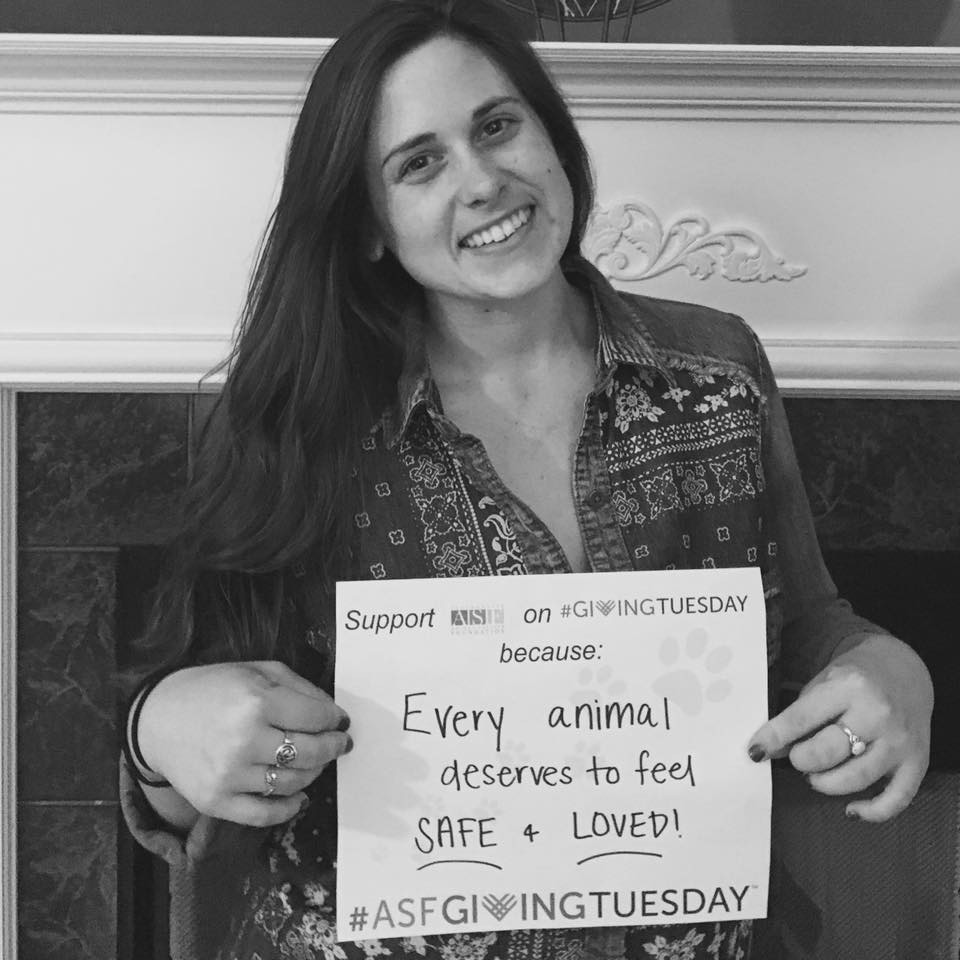 Support ASF on #GIVINGTUESDAY
FOUNDATION
because:
Every animal
deserves to feel
SAFE + LOVED!
#ASFGIVINGTUESDAY™